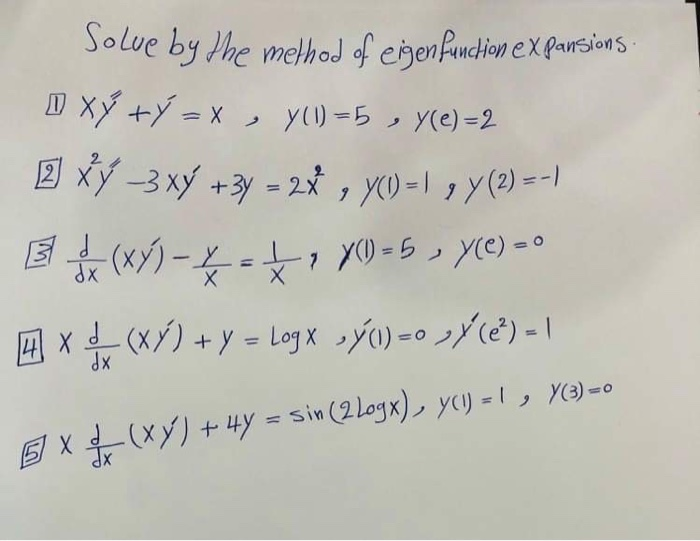 Solve by the method of eigenfunction expansions.
1 xy″ + y′ = x , y(1) = 5 , y(e) = 2
2 x²y″ - 3xy′ + 3y = 2x² , y(1) = 1 , y(2) = -1
3 d/dx (xy′) - y/x = 1/x , y(1) = 5 , y(e) = 0
4 x d/dx (xy′) + y = Log x , y′(1) = 0 , y′(e²) = 1
5 x d/dx (xy′) + 4y = sin(2Logx), y(1) = 1 , y(3) = 0